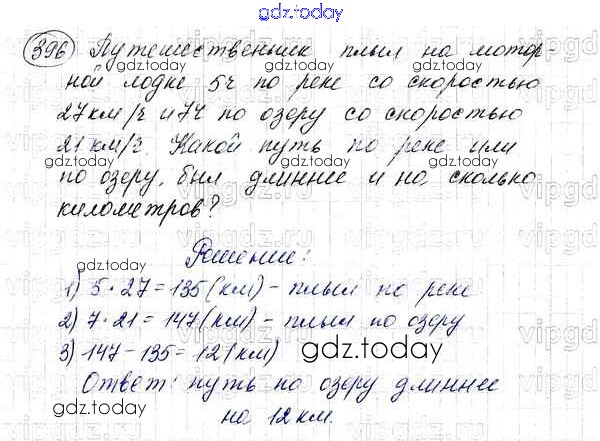 gdz.today
396 Путешественник плыл на мотор-
ной лодке 5ч по реке со скоростью
27 км/ч и 7ч по озеру со скоростью
21 км/ч. Какой путь по реке или
по озеру, был длиннее и на сколько
километров?
Решение:
1) 5 · 27 = 135 (км) - плыл по реке
2) 7 · 21 = 147 (км) - плыл по озеру
3) 147 - 135 = 12 (км)
Ответ: путь по озеру длиннее
на 12 км.